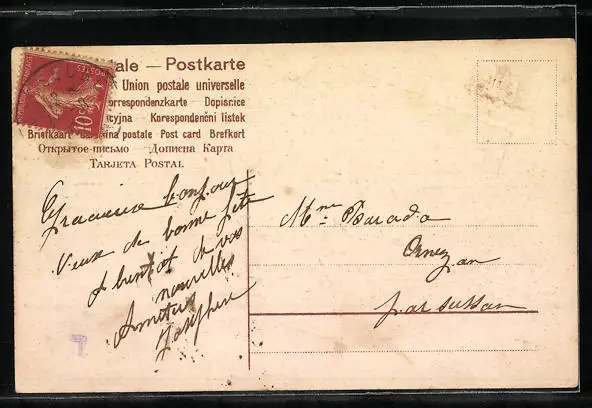 ale — Postkarte
Union postale universelle
orrespondenzkarte - Dopisnice
cyjna - Korespondenční listek
Briefkaart - postale Post card Brefkort
Открытое письмо — Дописна Карта
TARJETA POSTAL
POSTES
10c
Gracieux bonjour
Vœux de bonne fête
& bientôt de vos
nouvelles
Amitiés
Joséphine
Mme Barada
Ornezan
par Seissan